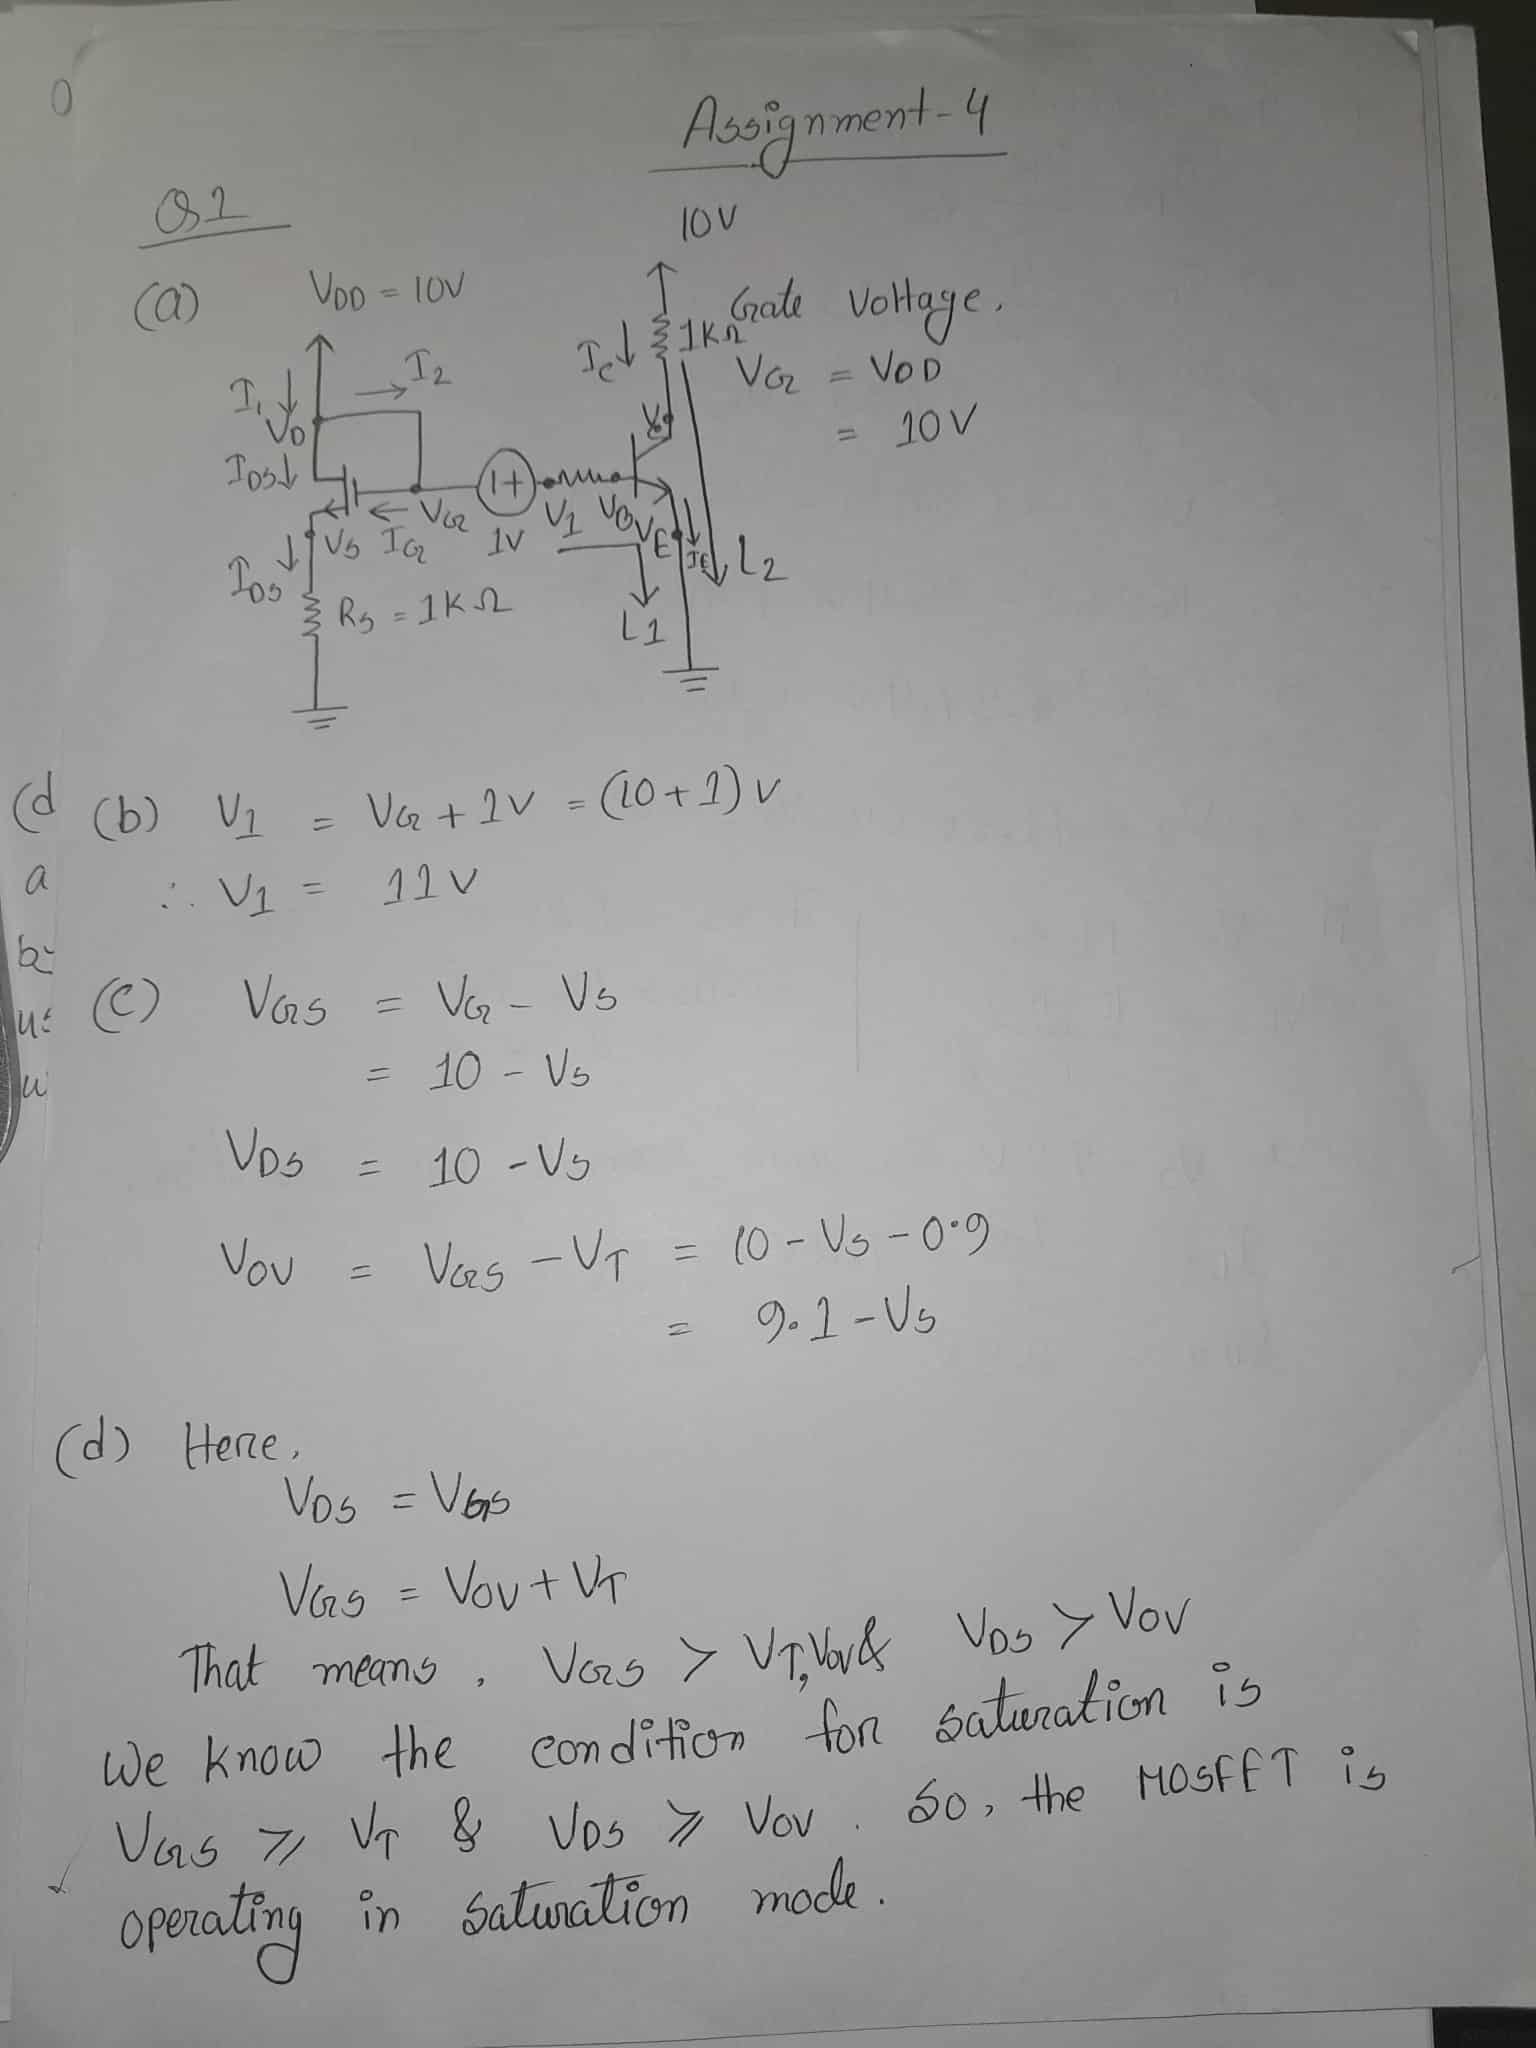 Assignment-4
Q1
(a)
VDD = 10V
10V
I1
I2
VD
IDS
IC
1KΩ
VC
Gate voltage,
VG = VDD
= 10V
VG
1V
V1
VB
VE
IE
L2
L1
VS
IG
IDS
RS = 1KΩ
(b) V1 = VG + 1V = (10+1) V
∴ V1 = 11V
(c) VGS = VG - VS
= 10 - VS
VDS = 10 - VS
VOV = VGS - VT = 10 - VS - 0.9
= 9.1 - VS
(d) Here,
VDS = VGS
VGS = VOV + VT
That means, VGS > VT, VOV & VDS > VOV
We know the condition for saturation is
VGS ≥ VT & VDS ≥ VOV. So, the MOSFET is
operating in saturation mode.
(d
a